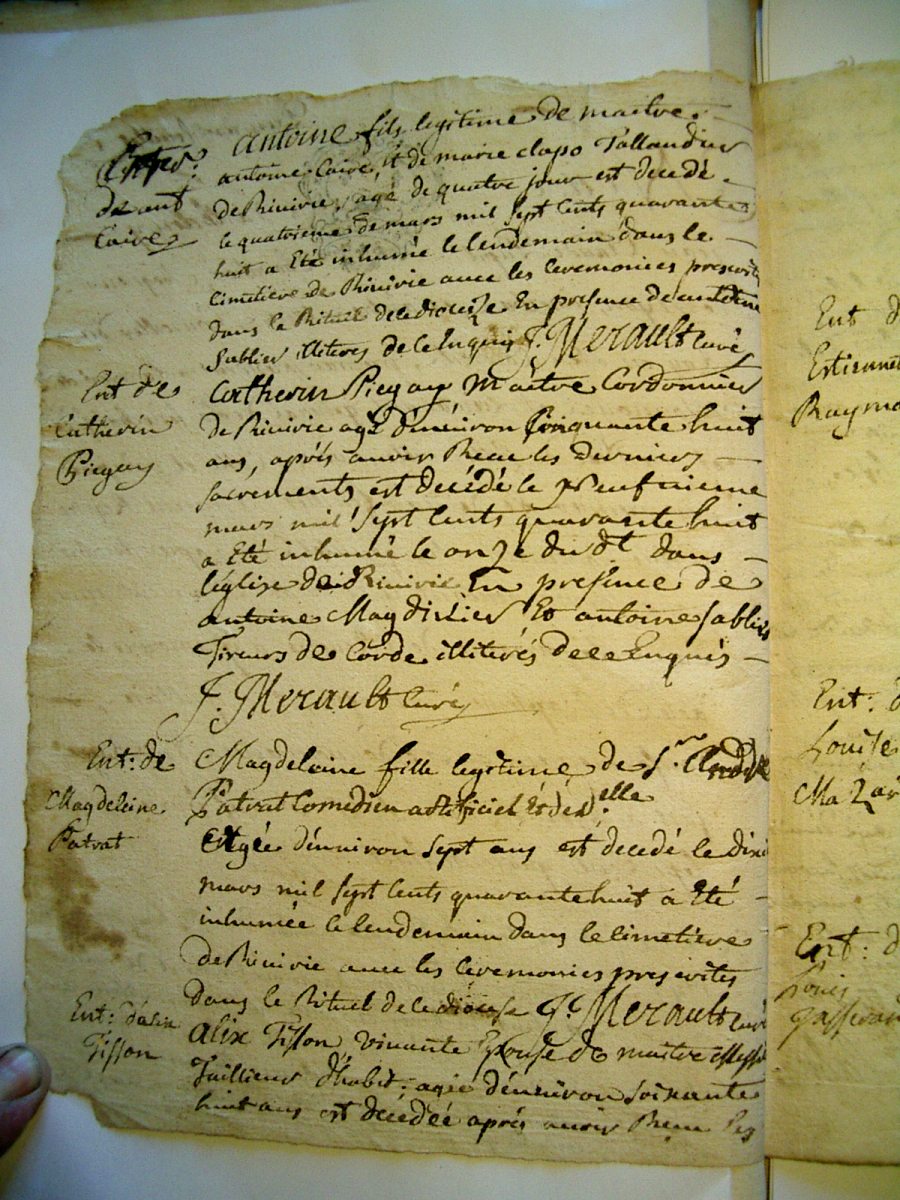 Enter:
de ant
Caire
antoine fils legitime de maitre
antoine Caire, et de marie clapo Taillandier
de Rivirie, agé de quatre jour est decedé
le quatrieme de mars mil sept cents quarante
huit a eté inhumé le lendemain dans le
cimetiere de Rivirie avec les ceremonies prescrites
dans le Rituel de ce diocese En presence de antoine
Sablier illiteres de ce Enquis J. Merault curé
Ent de
Catherin
Piegay
Catherin Piegay Maitre Cordonnier
de Rivirie agé d'environ Cinquante huit
ans, aprés avoir Receu les derniers
sacrements est decédé le Neufvieme
mars mil sept cents quarante huit
a eté inhumé le onze du dt dans
l'église de Rivirie En presence de
antoine Magdinier Et antoine Sablier
Tireurs de Corde illiterés de ce Enquis
J. Merault curé
Ent: de
Magdeleine
Patrat
Magdelaine fille legitime de Sr
Patrat Comedien et de delle
Agée d'environ sept ans est decedé le
mars mil sept cents quarante huit a eté
inhumée le lendemain dans le cimetiere
de Rivirie avec les ceremonies prescrites
dans le Rituel de ce diocese J. Merault curé
Ent: d'alix
Tisson
alix Tisson vivante Epouse de maitre
Taillieur d'habit, agée d'environ soixante
huit ans est decédeé aprés avoir Receu les
Ent d
Estienne
Raymo
Ent: d
Louise
Mazar
Ent: d
Louis